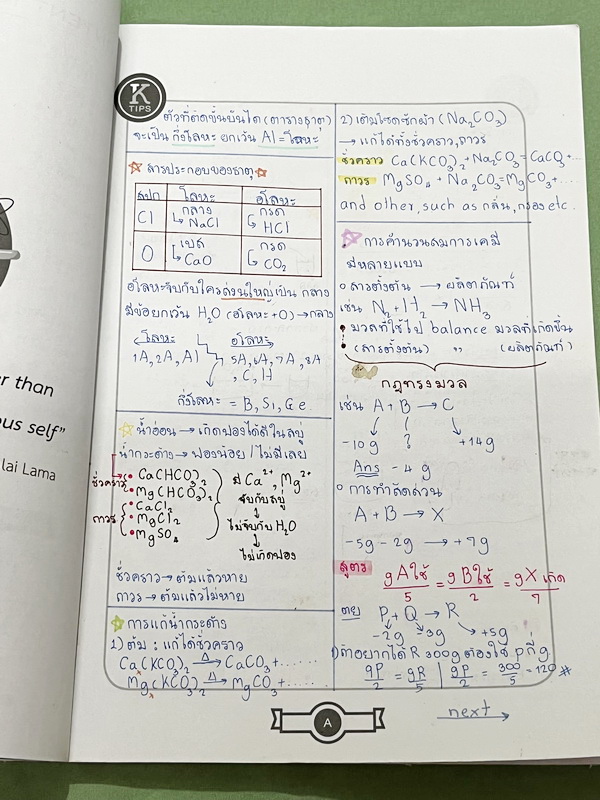 er than
ous self"
lai Lama
K
TIPS
ตัวที่ติดขั้นบันได (ตารางธาตุ)
จะเป็น กึ่งโลหะ ยกเว้น Al = โลหะ
สารประกอบของธาตุ
สปก โลหะ อโลหะ
Cl กลาง กรด
NaCl HCl
O เบส กรด
CaO CO₂
อโลหะจับกับใครส่วนใหญ่เป็น กลาง
มีข้อยกเว้น H₂O (อโลหะ + O) → กลาง
โลหะ อโลหะ
1A, 2A, Al 5A, 6A, 7A, 8A
, C, H
กึ่งโลหะ = B, Si, Ge
น้ำอ่อน → เกิดฟองได้ดีในสบู่
น้ำกระด้าง → ฟองน้อย / ไม่มีเลย
ชั่วคราว Ca(HCO₃)₂
Mg(HCO₃)₂
ถาวร CaCl₂
MgCl₂
MgSO₄
มี Ca²⁺, Mg²⁺
จับกับสบู่
ไม่จับกับ H₂O
ไม่เกิดฟอง
ชั่วคราว → ต้มแล้วหาย
ถาวร → ต้มแล้วไม่หาย
การแก้น้ำกระด้าง
1) ต้ม : แก้ได้ชั่วคราว
Ca(HCO₃)₂ →Δ CaCO₃ + ......
Mg(HCO₃)₂ →Δ MgCO₃ + .....
2) เติมโซดาซักผ้า (Na₂CO₃)
→ แก้ได้ทั้งชั่วคราว, ถาวร
ชั่วคราว Ca(HCO₃)₂ + Na₂CO₃ = CaCO₃ + ...
ถาวร MgSO₄ + Na₂CO₃ = MgCO₃ + .....
and other, such as กลั่น, กรอง etc.
การคำนวณสมการเคมี
มีหลายแบบ
สารตั้งต้น → ผลิตภัณฑ์
เช่น N₂ + H₂ → NH₃
มวลที่ใช้ไป balance มวลที่เกิดขึ้น
(สารตั้งต้น) " (ผลิตภัณฑ์)
กฎทรงมวล
เช่น A + B → C
-10g ? +14g
Ans - 4 g
การทำสัดส่วน
A + B → X
-5g -2g → +7g
สูตร gAใช้/5 = gBใช้/2 = gX เกิด/7
ตย P + Q → R
-2g -3g +5g
1) ถ้าอยากได้ R 300g ต้องใช้ P กี่ g
gP/2 = gR/5 | gP/2 = 300/5 = 120 #
next →
A